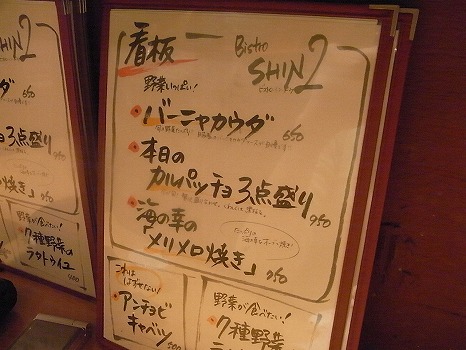 看板
Bistro
SHIN2
野菜いっぱい!
バーニャカウダ
650
本日の
カルパッチョ3点盛り
950
海の幸の
メリメロ焼き」
750
これは
はずせない!
アンチョビ
キャベツ
野菜が食べたい!
7種野菜
ダ
650
3点盛り
950
焼き」
750
野菜が食べたい!
7種野菜の
ラタトゥイユ